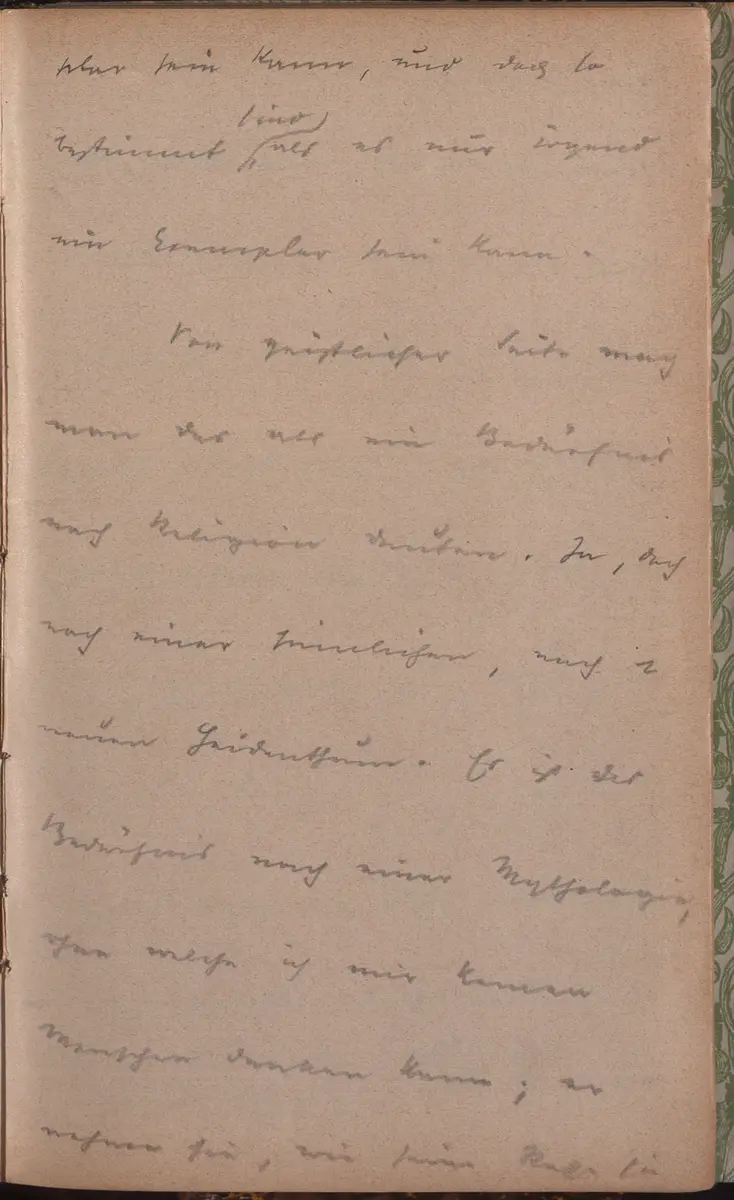 plar sein kann, und doch so
sind
bestimmt als es nur irgend
ein Exemplar sein kann.
Von geistlicher Seite mag
man das als ein Bedürfnis
nach Religion deuten. Ja, doch
nach einer sinnlichen, nach
neuen Heidenthum. Es ist das
Bedürfnis nach einer Mythologie,
ohne welche ich mir keinen
Menschen denken kann; er
nehme sie, wie seine Rasse sie